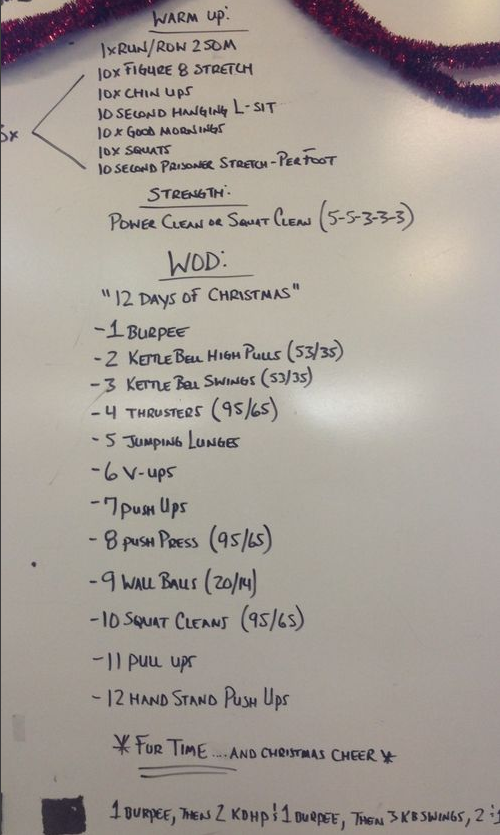 WARM UP:
1x RUN/ROW 250M
10x FIGURE 8 STRETCH
10x CHIN UPS
10 SECOND HANGING L-SIT
10 x GOOD MORNINGS
10x SQUATS
10 SECOND PRISONER STRETCH - PER FOOT
STRENGTH:
POWER CLEAN OR SQUAT CLEAN (5-5-3-3-3)
WOD:
"12 DAYS OF CHRISTMAS"
-1 BURPEE
-2 KETTLE BELL HIGH PULLS (53/35)
-3 KETTLE BELL SWINGS (53/35)
-4 THRUSTERS (95/65)
-5 JUMPING LUNGES
-6 V-UPS
-7 PUSH UPS
-8 PUSH PRESS (95/65)
-9 WALL BALLS (20/14)
-10 SQUAT CLEANS (95/65)
-11 PULL UPS
-12 HAND STAND PUSH UPS
* FUR TIME .... AND CHRISTMAS CHEER *
1 BURPEE, THEN 2 KBHP & 1 BURPEE, THEN 3 KB SWINGS, 2